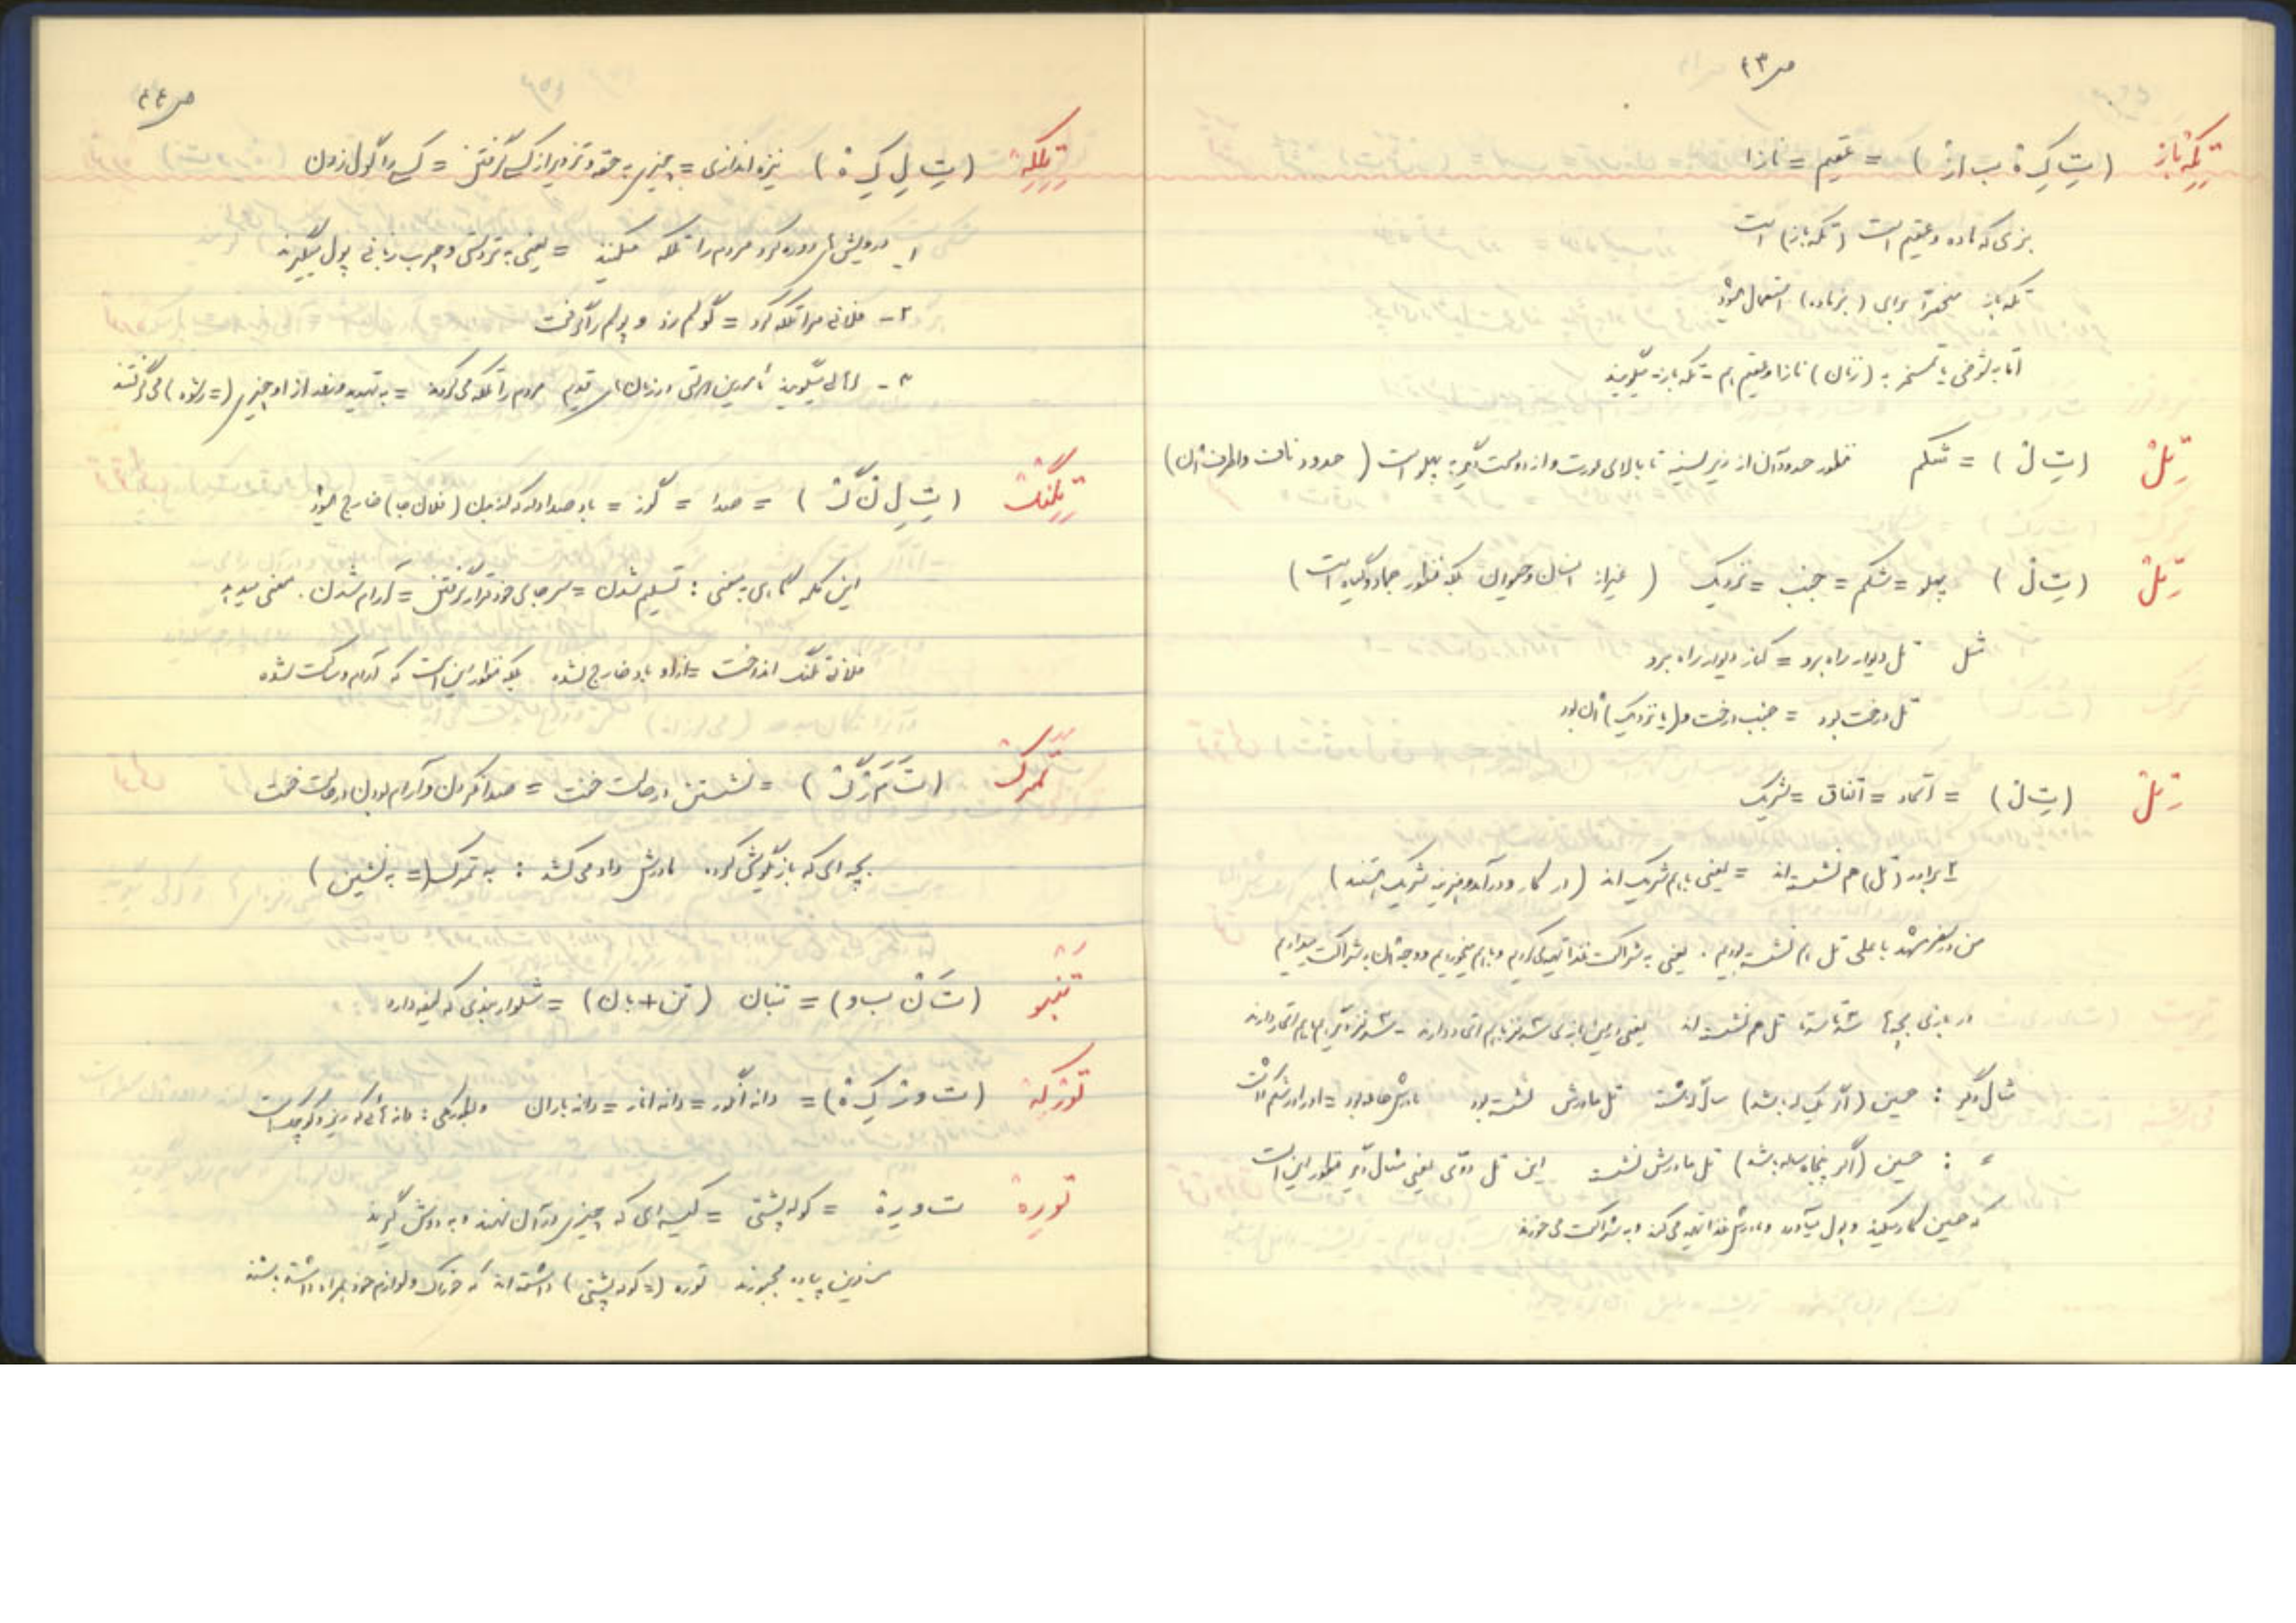 ص ۴۳
تِکِه باز (تِ کِ هْ ب ا زْ) = عقیم = نازا
بزی که ماده و عقیم است (تکه باز) است
تکه باز منحصراً برای (بز ماده) استعمال میشود
اما به شوخی یا تمسخر به (زنان) نازا و عقیم هم - تکه باز - میگویند
تِلْ (تِ لْ) = شکم منظور حدود آن از زیر سینه تا بالای عورت و از دو سمت دیگر به پهلو است (حدود ناف و اطراف آن)
تِلْ (تِ لْ) پهلو = شکم = جنب = نزدیک (غیر از انسان و حیوان بلکه منظور جماد و گیاه است)
مثل تل دیوار راه برو = کنار دیوار راه برو
تل درخت بود = جنب درخت و (یا نزدیک) آن بود
تِلْ (تِ لْ) = اتحاد = اتفاق = شریک
۲ برادر (تل) هم نشسته اند = یعنی باهم شریک اند (در کار و درآمد و هزینه شریک هستند)
من در سفر مشهد با علی تل هم نشسته بودیم. یعنی به شراکت غذا تهیه می کردیم و باهم میخوردیم و وجه آن را به شراکت میدادیم
در بازی بچه ها سه تا سه تا تل هم نشسته اند یعنی در این بازی سه نفر باهم اتحاد دارند - سه نفر دیگر هم باهم اتحاد دارند
مثال دیگر : حسین (اگر یک ساله باشد) سال گذشته تل مادرش نشسته بود مادرش حامله بود = او را در شکم داشت
〃 : حسین (اگر پنجاه ساله باشد) تل مادرش نشسته این تل دومی یعنی مثال دیگر منظور این است
که حسین کار میکند و پول میآورد و مادرش غذا تهیه می کند و به شراکت می خورند
ص ۴۴
تِلِکِهْ (تِ لِ کِ هْ) تیزه اندازی = چیزی به حقه و تزویر از کسی گرفتن = کسی را گول زدن
۱- درویش های دوره گرد مردم را تلکه میکنند = یعنی به تردستی و چرب زبانی پول میگیرند
۲- فلانی مرا تلکه کرد = گولم زد و پولم را گرفت
۳- اهالی میگویند مأمورین دولتی در زمان های قدیم مردم را تلکه می کردند = به تهدید و بعد از او چیزی (= رشوه) می گرفتند
تِلِنگْ (تِ لِ نْ گْ) = صدا = گوز = باد صدادار که از مبال (فلان جا) خارج میشود
این کلمه گاهی به معنی : تسلیم شدن = سر جای خود قرار گرفتن = آرام شدن. معنی میدهد
فلانی تلنگ انداخت = از او باد خارج نشده بلکه منظور این است که آرام و ساکت شده
تَمَرْگْ (تَ مَ رْ گْ) = نشستن در حالت خفت = صدا نکردن و آرام بودن در حالت خفت
بچه ای که بازیگوشی کرده مادرش داد می کشد : به تمرگ (= به نشین)
تَنبو (تَ نْ ب و) = تنبان (تن + بان) = شلوار بندی که لیفه دارد
تُوزکِهْ (ت و زْ کِ هْ) = دانه انگور = دانه انار = دانه باران و بطور کلی : دانه هائی که ریز و کوچک است
تُورِهْ ت و رِ هْ = کوله پشتی = کیسه ای که چیزی در آن نهند و به دوش گیرند
مسافرین پیاده مجبورند توره (= کوله پشتی) داشته اند که خوراک و لوازم خود همراه داشته باشند